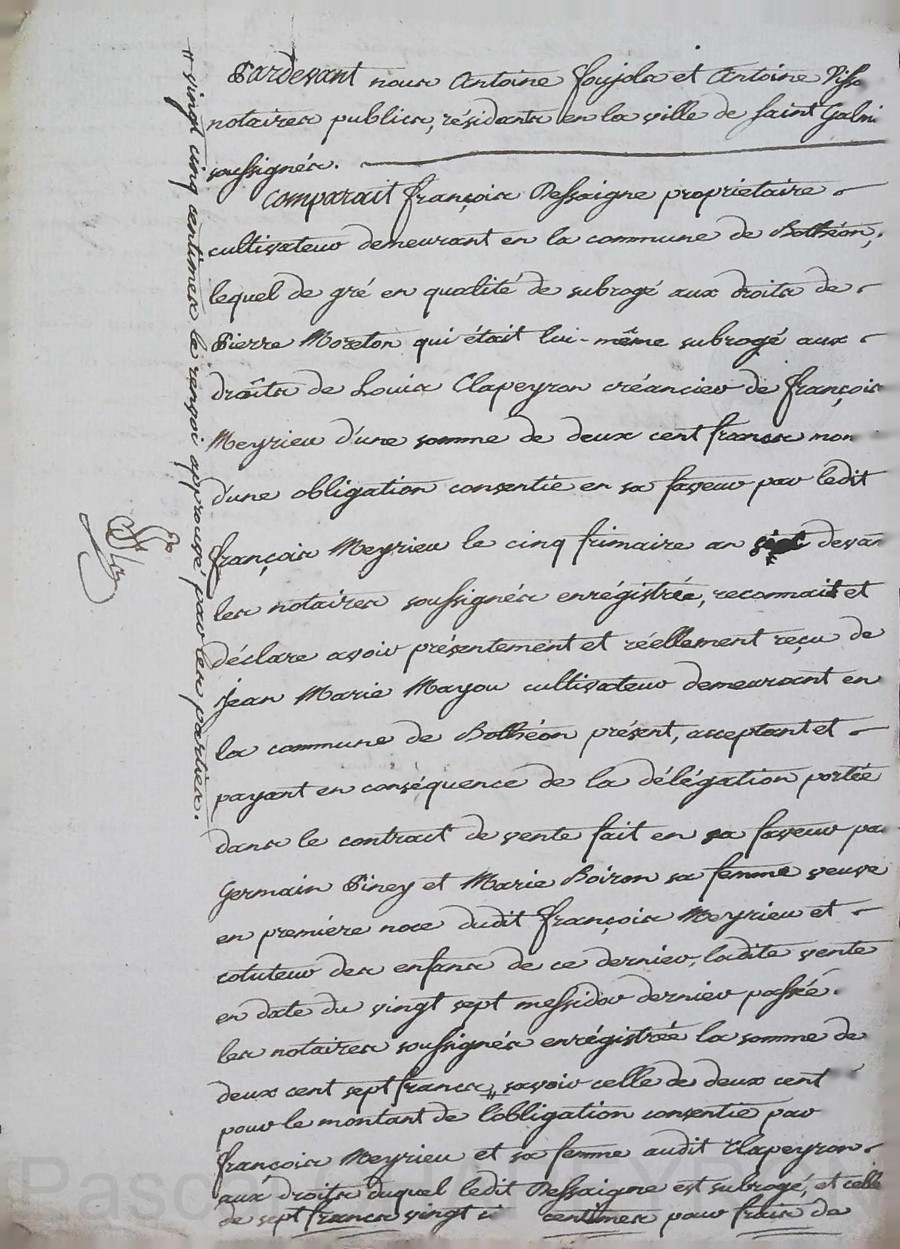 Pardevant nous Antoine Foujols et Antoine
notaires publics, résidants en la ville de Saint Galmi
soussignés.
Comparait françois Dessaigne proprietaire
cultivateur demeurant en la commune de Bothéon,
lequel de gré en qualité de subrogé aux droits de
Pierre Moreton qui était lui-même subrogé aux
droits de Louis Clapeyron créancier de françois
Meyrieu d'une somme de deux cent francs
d'une obligation consentie en sa faveur par ledit
françois Meyrieu le cinq frimaire an devan
les notaires soussignés enrégistrée, reconnait et
déclare avoir présentement et réellement reçu de
Jean Marie Mayou cultivateur demeurant en
la commune de Bothéon présent, acceptant et
payant en conséquence de la délégation portée
dans le contrait de vente fait en sa faveur pa
Germain Piney et Marie Boiron sa femme veuve
en première noce dudit françois Meyrieu et
cotuteur des enfans de ce dernier, ladite vente
en date du vingt sept messidor dernier passée
les notaires soussignés enrégistrée la somme de
deux cent sept francs " savoir celle de deux cent
pour le montant de l'obligation consentie par
françois Meyrieu et sa femme audit Clapeyron
aux droits duquel ledit Dessaigne est subrogé, et celle
de sept francs vingt centimes pour frais de
" vingt cinq centimes le renvoi approuvé par les parties.